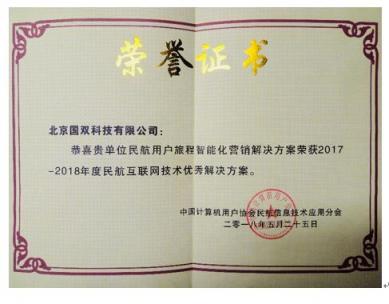 荣誉证书
北京国双科技有限公司：
恭喜贵单位民航用户旅程智能化营销解决方案荣获2017
-2018年度民航互联网技术优秀解决方案。
中国计算机用户协会民航信息技术应用分会
二零一八年五月二十五日